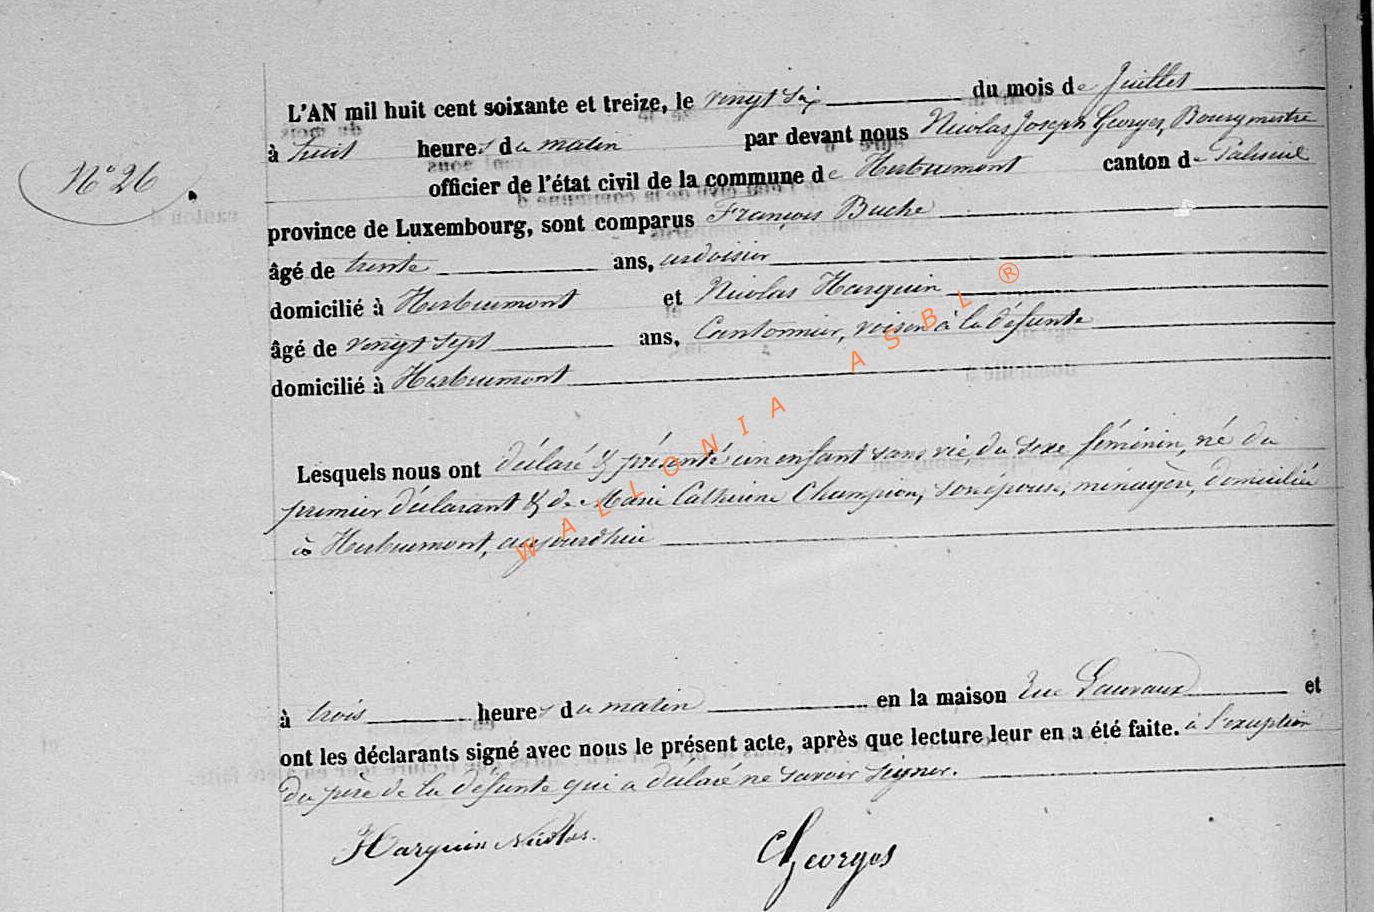 L'AN mil huit cent soixante et treize, le vingt six du mois de Juillet
à huit heures du matin par devant nous Nicolas Joseph Georges, Bourgmestre
N° 26
officier de l'état civil de la commune de Herbeumont canton de Paliseul
province de Luxembourg, sont comparus François Buche
âgé de trente ans, ardoisier
domicilié à Herbeumont et Nicolas Harquin
âgé de vingt sept ans, Cantonnier, voisin à la défunte
domicilié à Herbeumont
WALLONIA ASBL ®
Lesquels nous ont déclaré & présenté un enfant sans vie, du sexe féminin, né du
premier déclarant & de Marie Catherine Champion, son épouse, ménagère, domiciliée
à Herbeumont, aujourdhui
à trois heures du matin en la maison rue Lauvaux et
ont les déclarants signé avec nous le présent acte, après que lecture leur en a été faite. à l'exception
du père de la défunte qui a déclaré ne savoir signer.
Harquin Nicolas. Georges